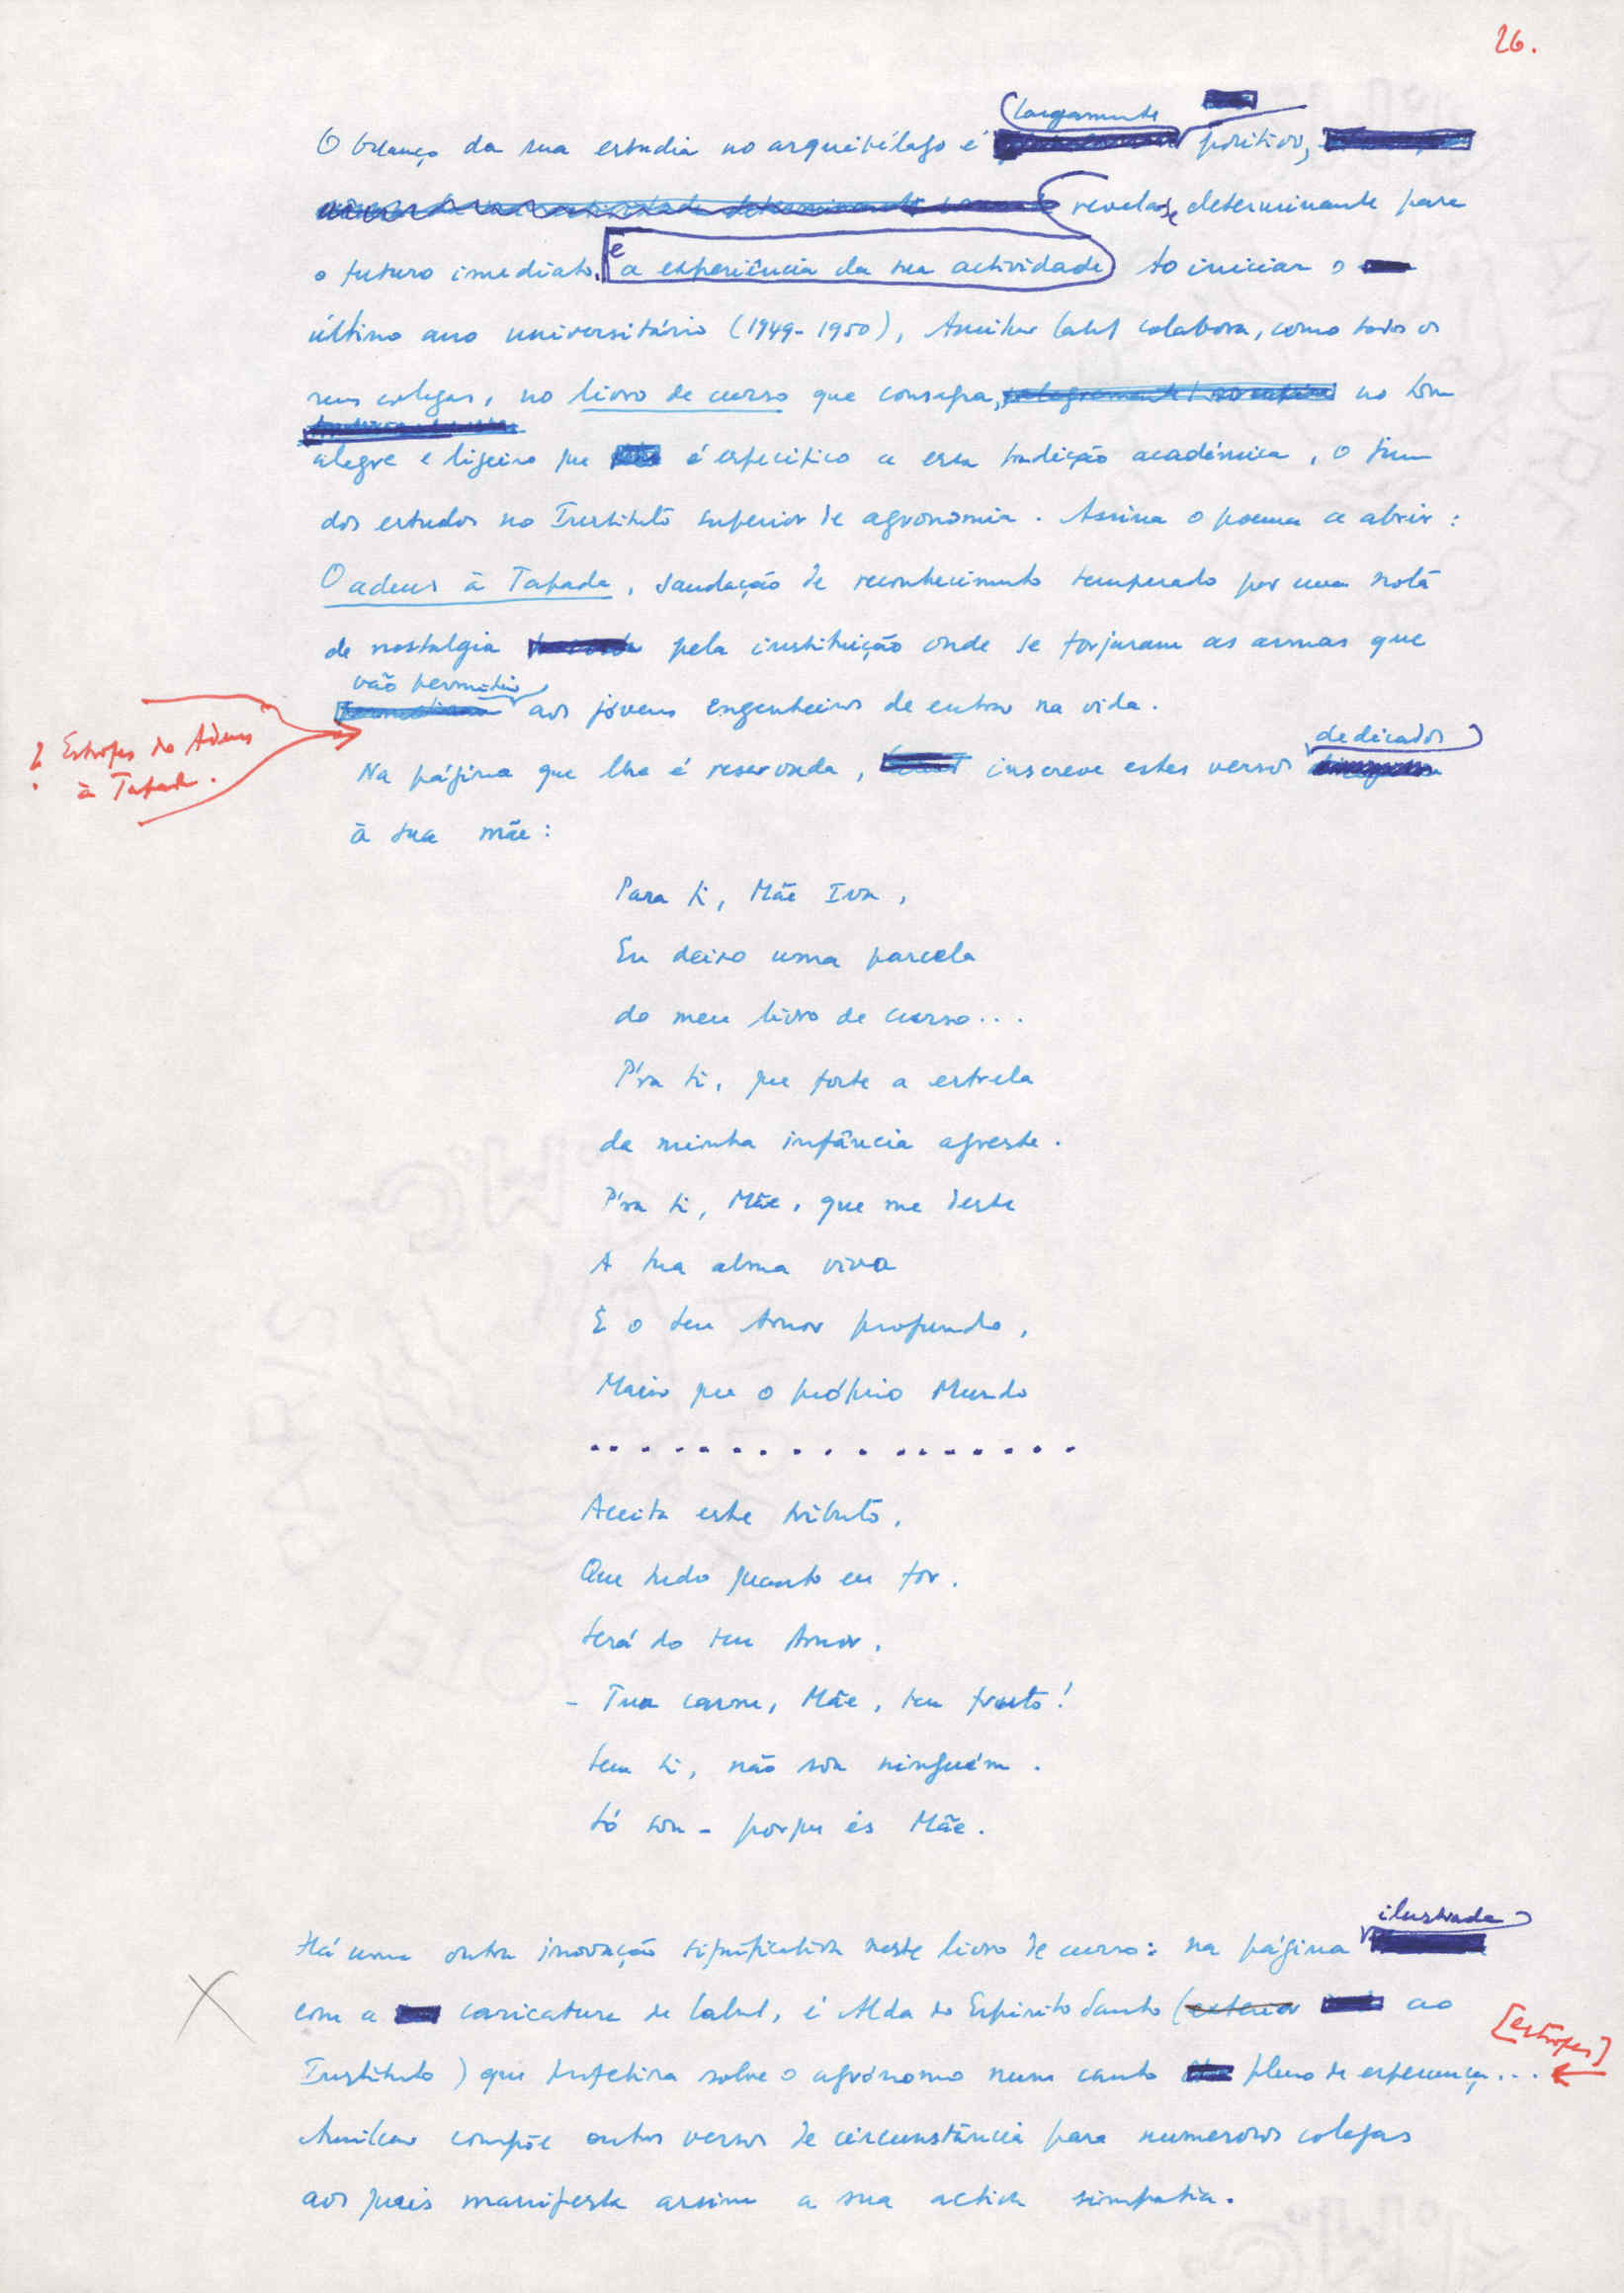 26.
largamente
O balanço da sua estadia no arquipélago é positivo,
revela-se determinante para
o futuro imediato. e a experiência da sua actividade Ao iniciar o
último ano universitário (1949-1950), Amílcar Cabral colabora, como todos os
seus colegas, no livro de curso que consagra, no tom
alegre e ligeiro que é específico a essa tradição académica, o fim
dos estudos no Instituto superior de agronomia. Assina o poema a abrir:
O adeus à Tapada, saudação de reconhecimento temperado por uma nota
de nostalgia pela instituição onde se forjaram as armas que
vão permitir
aos jovens engenheiros de entrar na vida.
2 Estrofes do Adeus
à Tapada.
dedicados
Na página que lhe é reservada, inscreve estes versos
à sua mãe:
Para ti, Mãe Iva,
Eu deixo uma parcela
do meu livro de curso...
P'ra ti, que foste a estrela
da minha infância agreste.
P'ra ti, Mãe, que me deste
A tua alma viva
E o teu Amor profundo,
Maior que o próprio Mundo
..................
Aceita este tributo,
Que tudo quanto eu for,
será do teu Amor,
- Tua carne, Mãe, teu fruto!
Sem ti, não sou ninguém.
Só sou - porque és Mãe.
ilustrada
Há uma outra inovação significativa neste livro de curso: na página
com a caricatura de Cabral, é Alda do Espírito Santo (exterior ao
[estrofes]
Instituto) que profetiza sobre o agrónomo num canto pleno de esperança...
Amílcar compõe outros versos de circunstância para numerosos colegas
aos quais manifesta assim a sua activa simpatia.